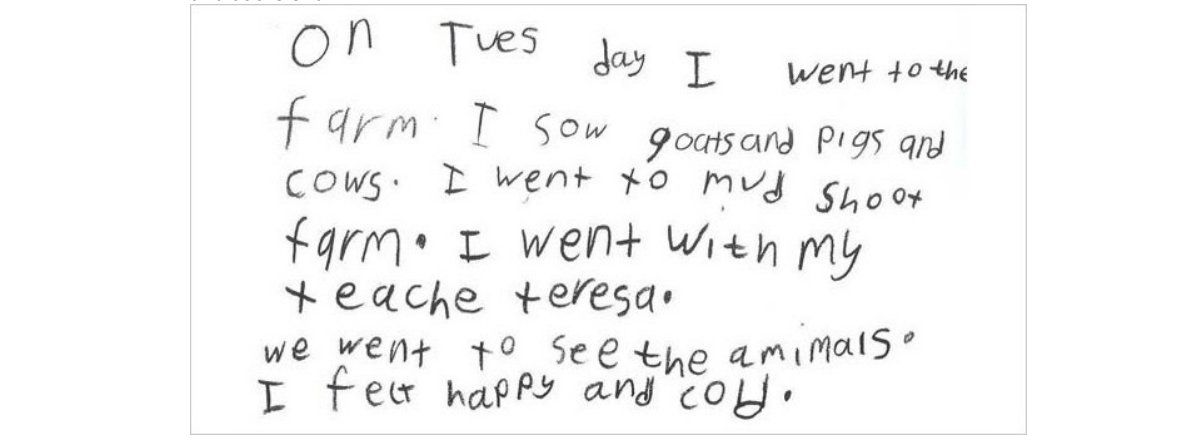 on Tues day I went to the
farm. I sow goats and pigs and
cows. I went to mud shoot
farm. I went with my
teache teresa.
we went to see the amimals.
I felt happy and cold.